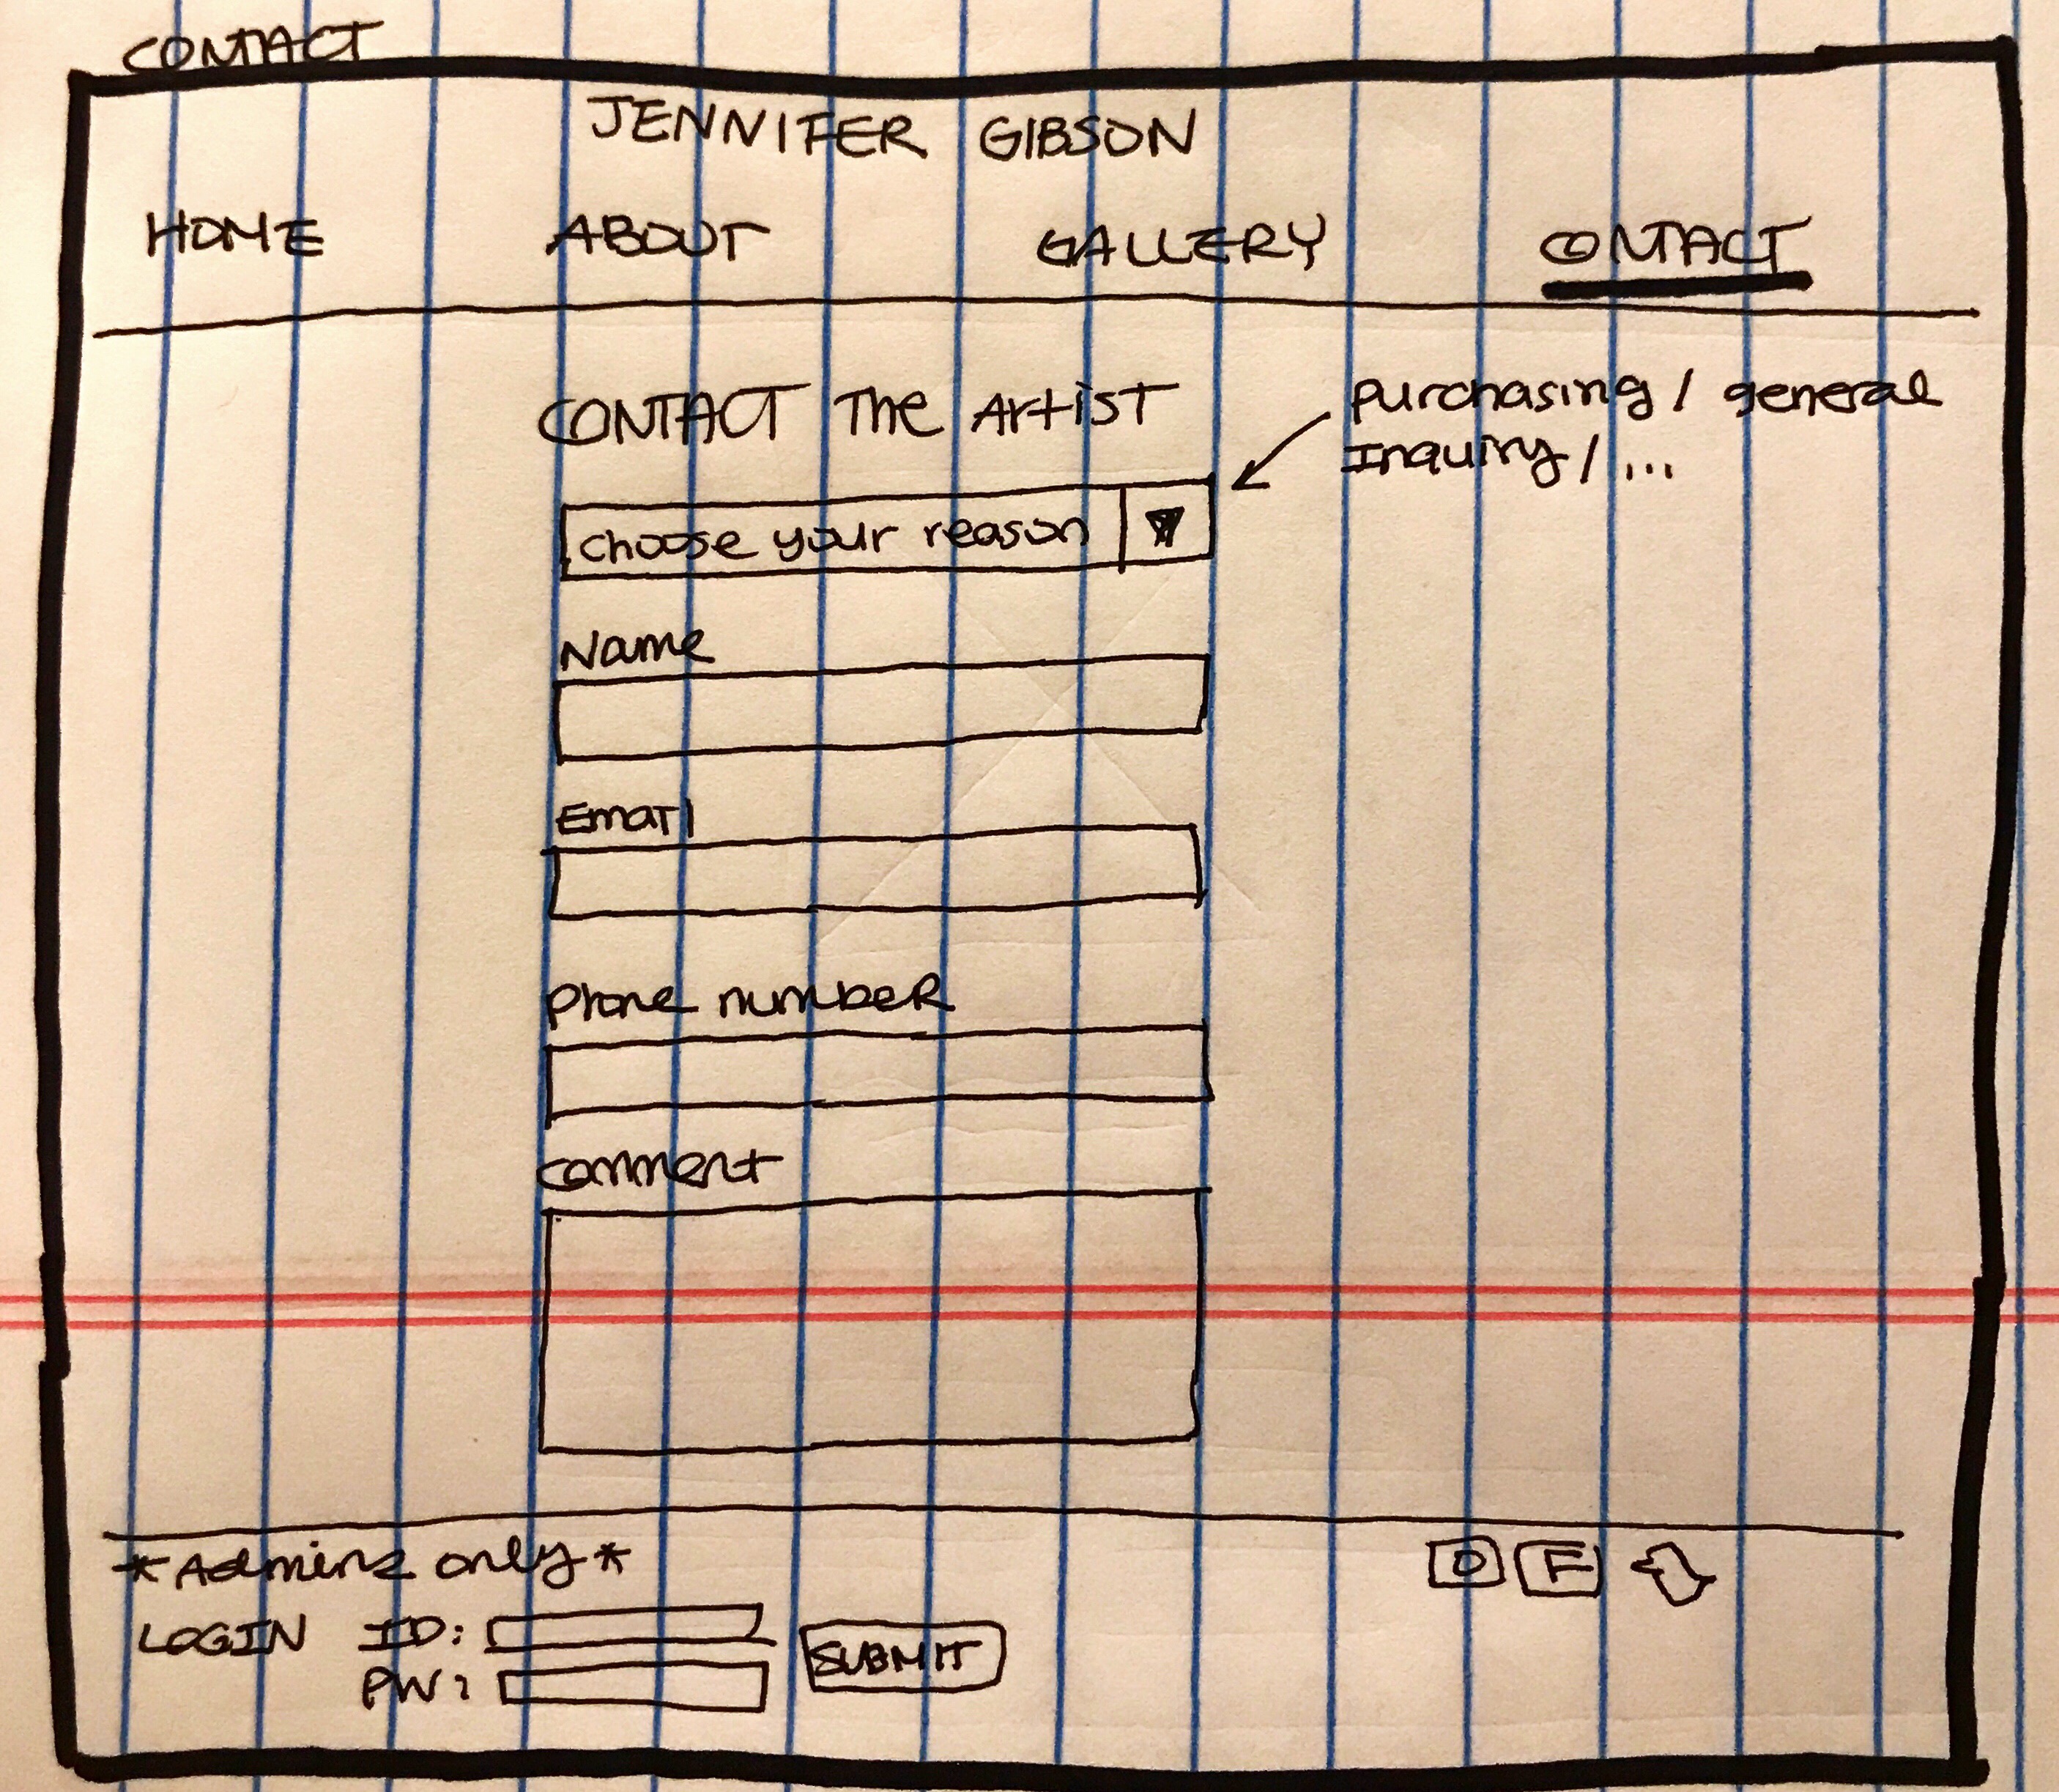 CONTACT
JENNIFER GIBSON
HOME ABOUT GALLERY CONTACT
CONTACT The Artist
Purchasing / general
Inquiry / ...
choose your reason
Name
Email
phone number
comment
*Admins only*
O F
LOGIN ID:
SUBMIT
PW: